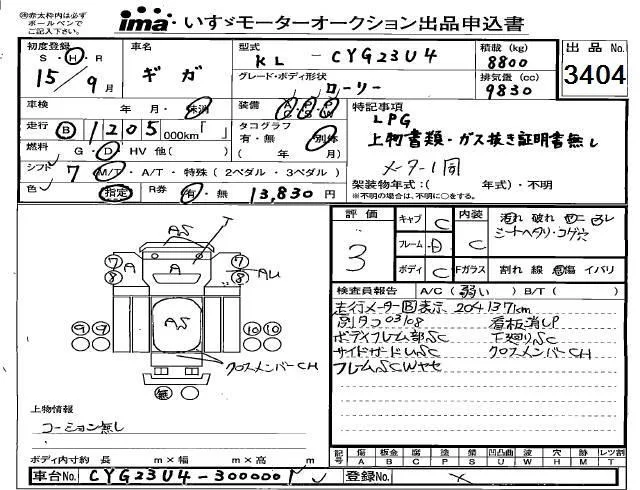 ㊟赤太枠内は必ず
ボールペンで
ご記入下さい。
ima・いすゞモーターオークション出品申込書
初度登録 車名 型式 積載(kg) 出品No.
S・H・R 15年9月 ギガ KL-CYG23U4 8800 3404
グレード・ボディ形状 ローリー 排気量(cc) 9830
車検 年 月・抹消 装備 AC PS PW 特記事項
走行 B 1205,000km タコグラフ 有・無 別体 (年 月) LPG
上物書類・ガス抜き証明書無し
燃料 G・D・HV 他( )
シフト 7 M/T・A/T・特殊(2ペダル・3ペダル) メーター1回
色 指定 R券 有・無 13,830円 架装物年式:( 年式)・不明
※不明の場合は、不明に○をする。
評価 3 キャブ C 内装 C 汚れ 破れ
シートヘタリ・コゲ穴
フレーム D
ボディ C Fガラス 割れ 線 傷 イバリ
検査員報告 A/C(弱い) B/T( )
走行メーターB表示 204137km
別タコ03/08 看板消しP
ボディフレーム部SC 下廻りSC
サイドガードUSC クロスメンバーCH
フレームSCWヤセ
T
AS
7 A A 7
8 8 AU
AS
9 9 10 10
クロスメンバーCH
無
上物情報
コーション無し
ボディ内寸 約 m×幅 m×高 m
記号 傷 板金 腐 塗 錆 凹凸曲 波 穴 跡 レツ割
A B C P S U W H M T
車台No. CYG23U4-3000001 登録No.